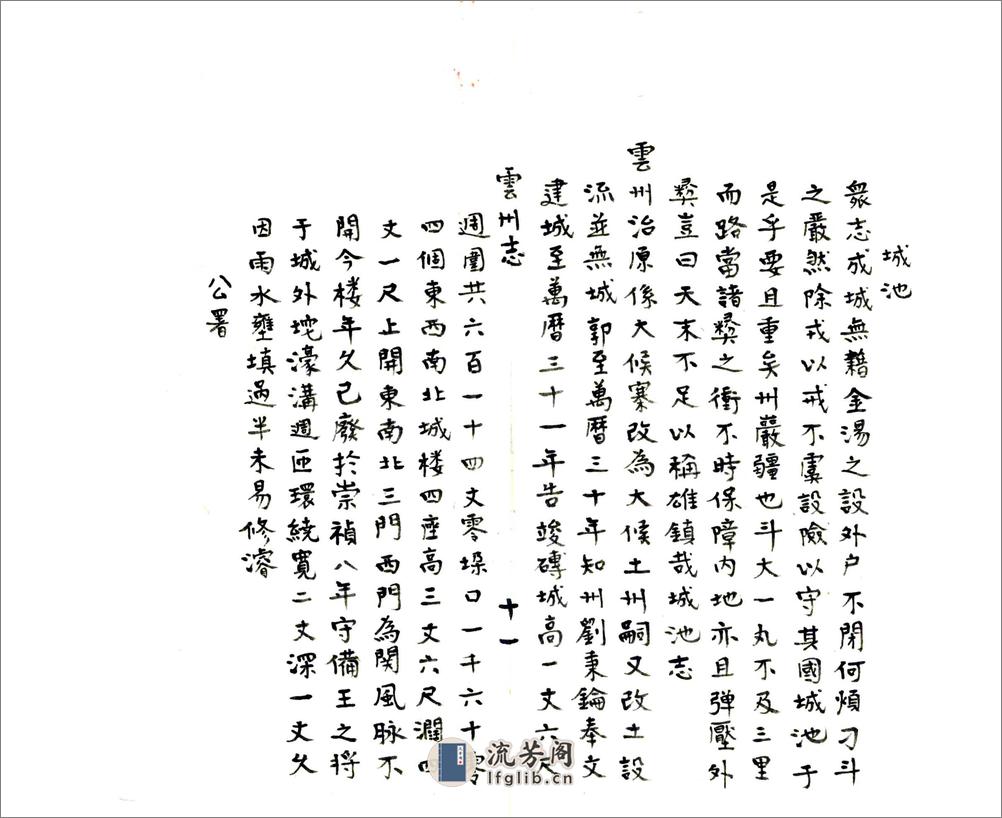 城池
衆志成城無藉金湯之設外户不閉何煩刁斗
之嚴然除戎以戒不虞設險以守其國城池于
是乎要且重矣州嚴疆也斗大一丸不及三里
而路當諸彝之衝不時保障内地亦且弹壓外
彝豈曰天末不足以稱雄鎮哉城池志
雲州治原係大候寨改為大候土州嗣又改土設
流並無城郭至萬曆三十年知州劉秉鑰奉文
建城至萬曆三十一年告竣磚城高一丈六尺
雲州志
十一
週圍共六百一十四丈零垛口一千六十零
四個東西南北城楼四座高三丈六尺濶四
丈一尺上開東南北三門西門為関風脉不
開今楼年久已廢於崇禎八年守備王之将
于城外挖濠溝週匝環繞寬二丈深一丈久
因雨水壅填過半未易修濬
公署
流芳阁
lfglib.cn